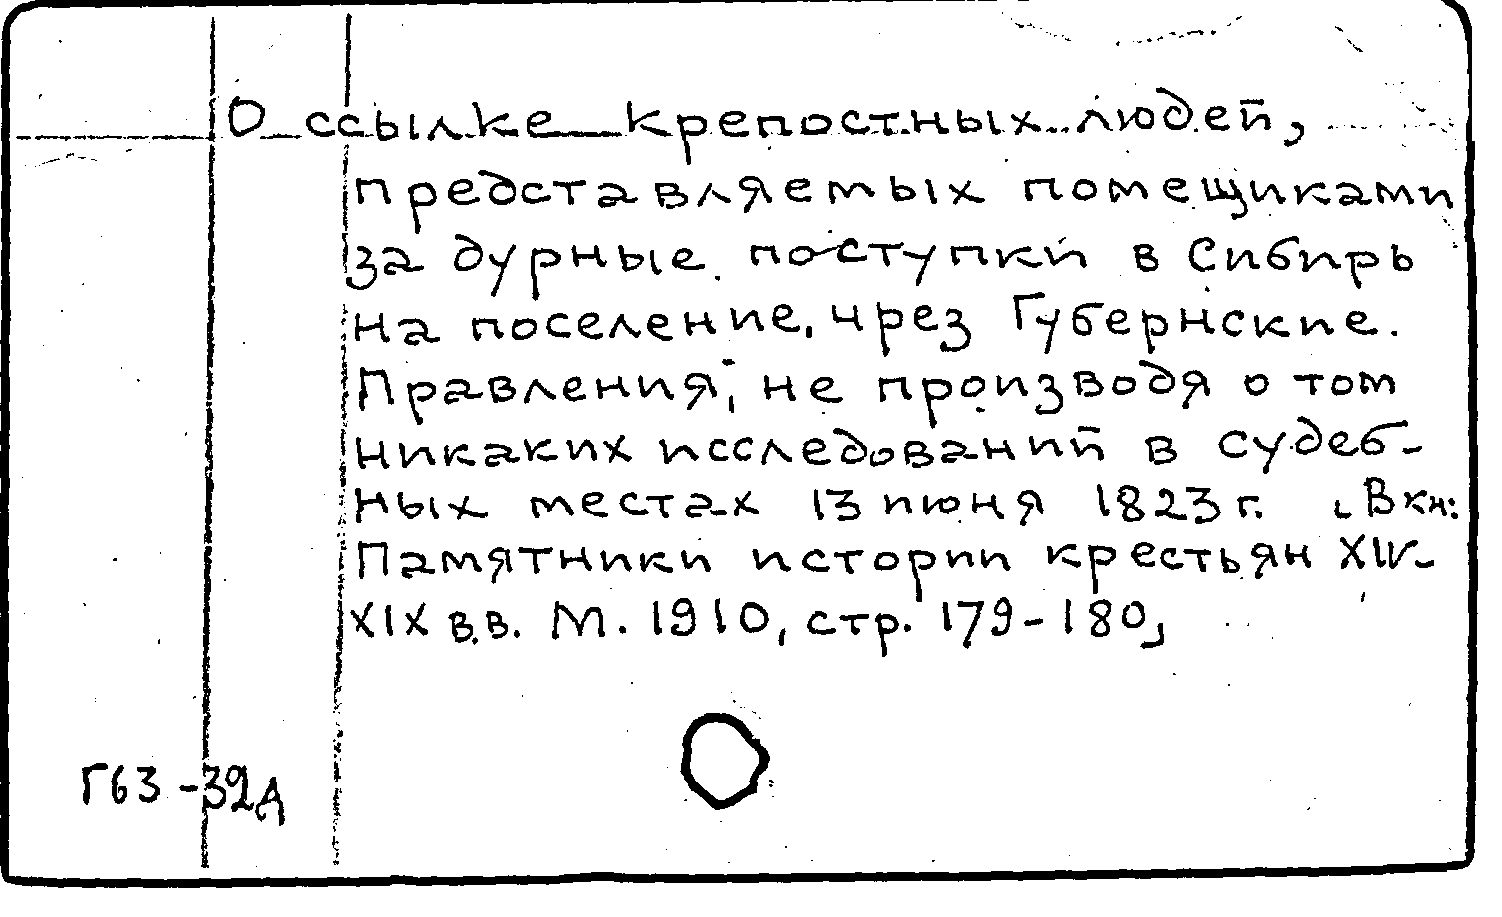 О ссылке крепостных людей,
представляемых помещиками
за дурные поступки в Сибирь
на поселение, чрез Губернские
Правления, не производя о том
никаких исследований в судеб-
ных местах 13 июня 1823 г. (В кн:
Памятники истории крестьян XIV-
XIX в.в. М. 1910, стр. 179-180)
Г63-32А